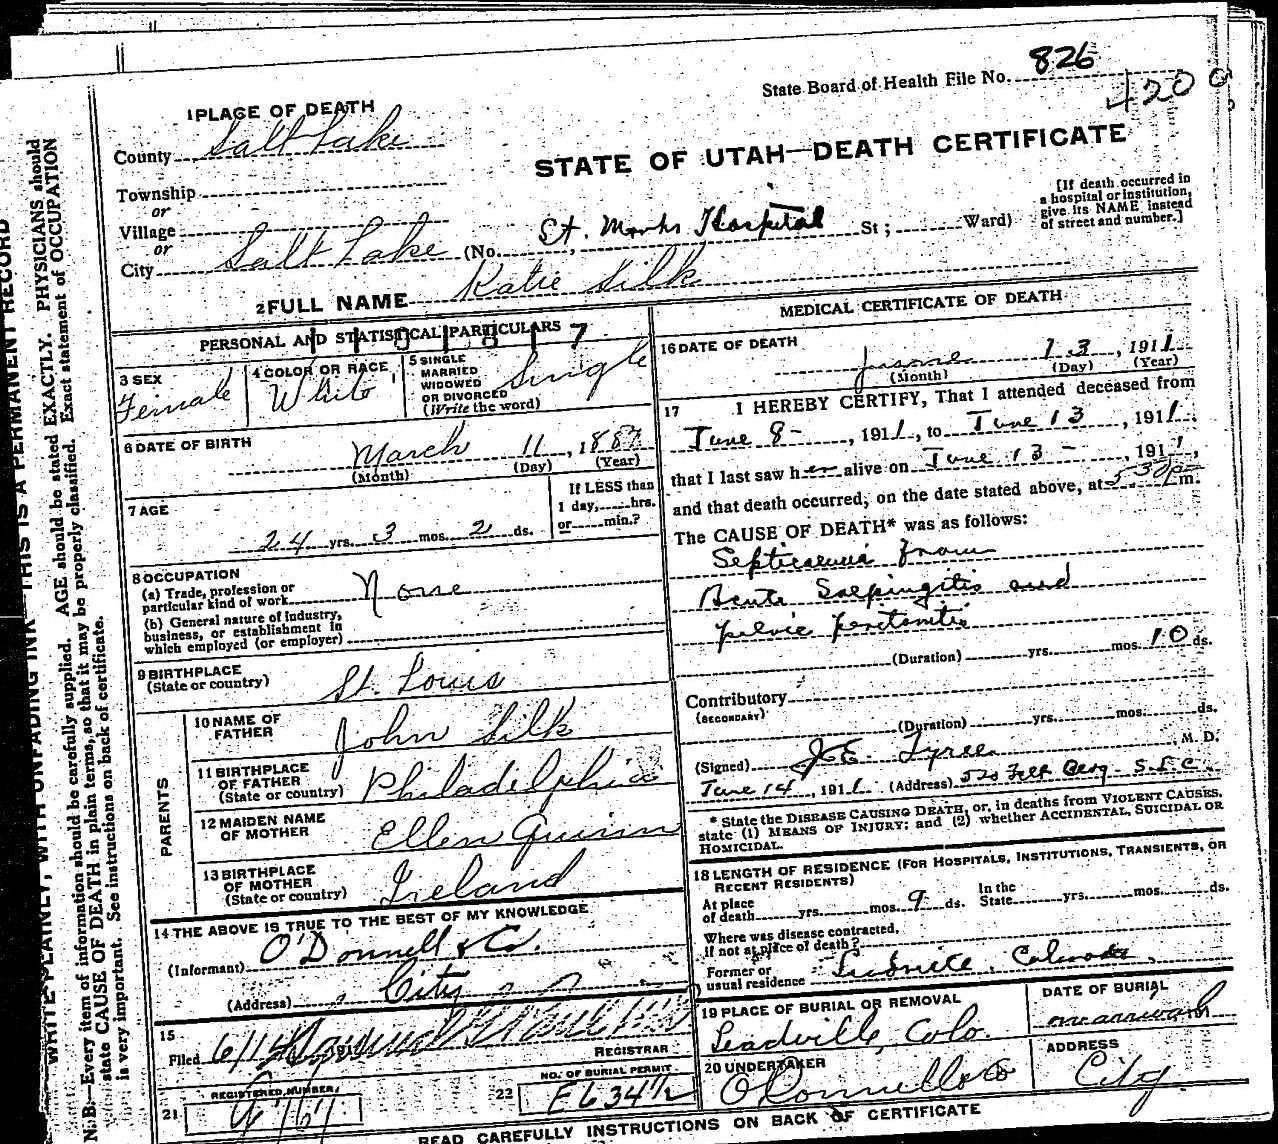 State Board of Health File No. 826
4200
1 PLACE OF DEATH
County Salt Lake
STATE OF UTAH—DEATH CERTIFICATE
Township
or
Village
or
City Salt Lake (No. St. Marks Hospital St; Ward)
[If death occurred in
a hospital or institution,
give its NAME instead
of street and number.]
2 FULL NAME Katie Silk
PERSONAL AND STATISTICAL PARTICULARS
3 SEX
Female
4 COLOR OR RACE
White
5 SINGLE
MARRIED
WIDOWED
OR DIVORCED
(Write the word)
Single
6 DATE OF BIRTH
March 11, 1887
(Month) (Day) (Year)
7 AGE
24 yrs. 3 mos. 2 ds.
If LESS than
1 day, hrs.
or min.?
8 OCCUPATION
(a) Trade, profession or
particular kind of work None
(b) General nature of industry,
business, or establishment in
which employed (or employer)
9 BIRTHPLACE
(State or country) St. Louis
PARENTS
10 NAME OF
FATHER John Silk
11 BIRTHPLACE
OF FATHER
(State or country) Philadelphia
12 MAIDEN NAME
OF MOTHER Ellen Quinn
13 BIRTHPLACE
OF MOTHER
(State or country) Ireland
14 THE ABOVE IS TRUE TO THE BEST OF MY KNOWLEDGE
(Informant) O'Donnell & Co.
(Address) City
15
Filed
REGISTRAR
REGISTERED NUMBER
21
22
NO. OF BURIAL PERMIT
E634½
MEDICAL CERTIFICATE OF DEATH
16 DATE OF DEATH
June 13, 1911
(Month) (Day) (Year)
17 I HEREBY CERTIFY, That I attended deceased from
June 8-, 1911, to June 13, 1911.
that I last saw her alive on June 13-, 1911,
and that death occurred, on the date stated above, at 530 p m.
The CAUSE OF DEATH* was as follows:
Septicaemia from
Acute Salpingitis and
pelvic peritonitis
(Duration) yrs. mos. 10 ds.
Contributory
(SECONDARY)
(Duration) yrs. mos. ds.
(Signed) J.E. Tyree, M. D.
June 14, 1911. (Address) 520 Felt Bldg. S.L.C.
* State the DISEASE CAUSING DEATH, or, in deaths from VIOLENT CAUSES,
state (1) MEANS OF INJURY; and (2) whether ACCIDENTAL, SUICIDAL OR
HOMICIDAL.
18 LENGTH OF RESIDENCE (FOR HOSPITALS, INSTITUTIONS, TRANSIENTS, OR
RECENT RESIDENTS)
At place
of death yrs. mos. 9 ds.
In the
State yrs. mos. ds.
Where was disease contracted,
If not at place of death?
Former or
usual residence Colorado
19 PLACE OF BURIAL OR REMOVAL
Leadville, Colo.
DATE OF BURIAL
20 UNDERTAKER
O'Donnell & Co
ADDRESS
City.
READ CAREFULLY INSTRUCTIONS ON BACK OF CERTIFICATE
WRITE PLAINLY, WITH UNFADING INK—THIS IS A PERMANENT RECORD
N. B.—Every item of information should be carefully supplied. AGE should be stated EXACTLY. PHYSICIANS should
state CAUSE OF DEATH in plain terms, so that it may be properly classified. Exact statement of OCCUPATION
is very important. See instructions on back of certificate.